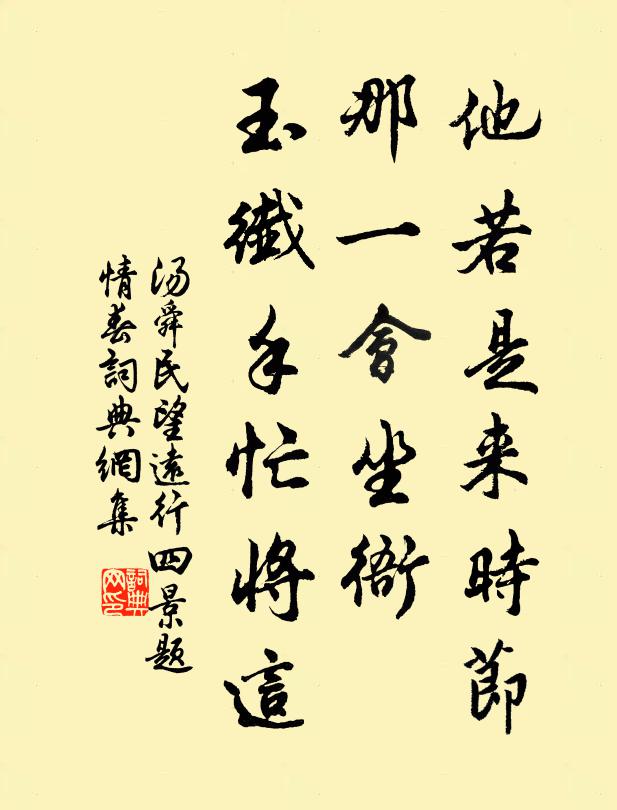 他若是来時節
那一會坐衙
玉纖手忙將這
汤舜民望遠行四景题
情春詞典網集
詞典
网印